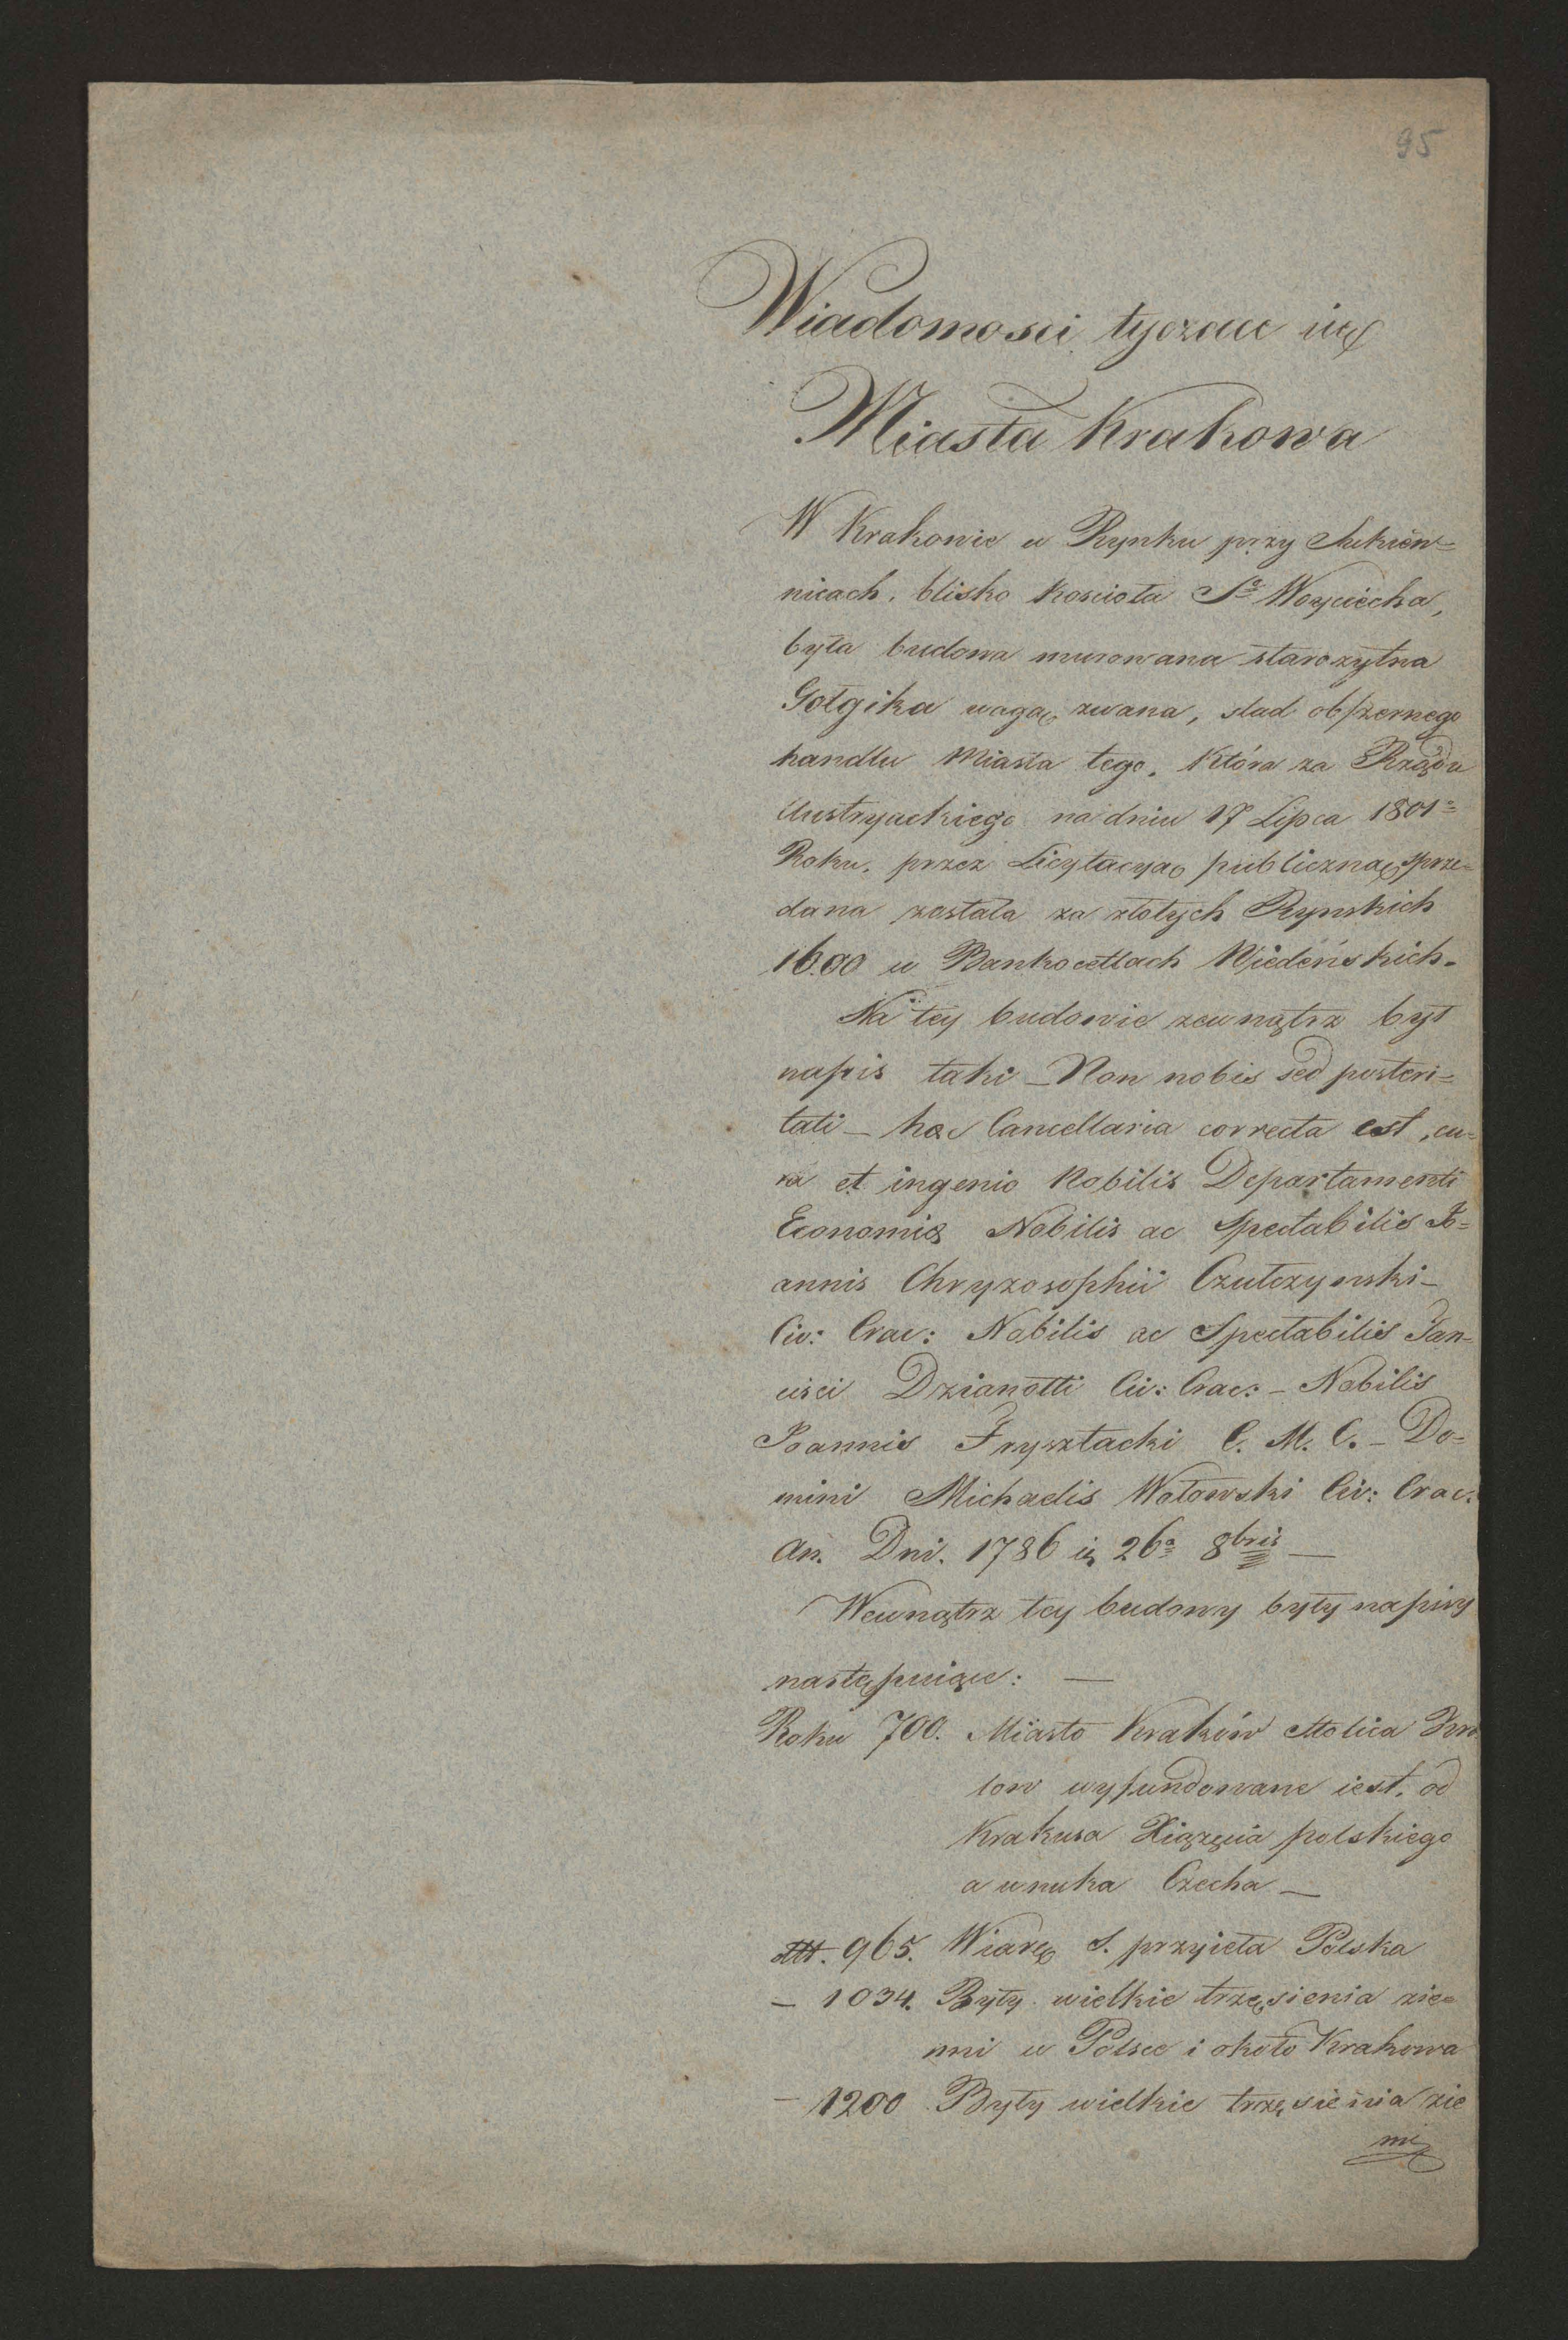 95
Wiadomosci tyczące się
Miasta Krakowa
W Krakowie w Rynku przy Sukien=
nicach, blisko Koscioła Sº Woyciecha,
była budowa murowana starozytna
Gotgika wagą zwana, slad obszernego
handlu Miasta tego, Która za Rządu
Austryackiego na dniu 17 Lipca 1801º
Roku, przez Licytacyą publiczną sprze=
dana została za złotych Rynskich
1600 w Bankocetlach Wiedeńskich.
Na tey budowie zewnątrz był
napis taki – Non nobis sed posteri=
tati – hæc Cancellaria correcta est, cu=
ra et ingenio Nobilis Departamenti
Economiæ Nobilis ac Spectabilis Jo=
annis Chryzosophii Czutczynski –
Civ: Crac: Nobilis ac Spectabilis Fan=
cisci Dzianotti Civ: Crac: – Nobilis
Joannis Frysztacki C. M. C. – Do=
mini Michaelis Wołowski Civ: Crac:
An. Dni. 1786 26ª 8bris —
Wewnątrz tey budowy były napisy
następuiące: —
Roku 700. Miasto Kraków Stolica Kró
low wyfundowane iest, od
Krakusa Xiążęcia polskiego
a wnuka Czecha —
dtt. 965. Wiarę S. przyieła Polska
– 1034. Były wielkie trzęsienia zie=
mi w Polsce i około Krakowa
– 1200 Były wielkie trzęsienia zie
mi